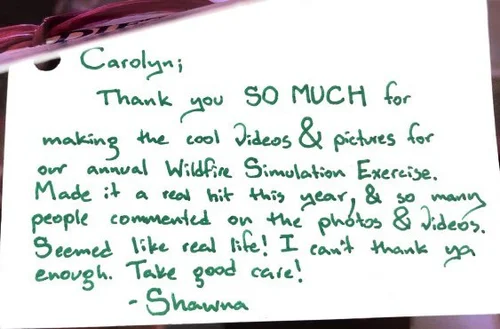 Carolyn;
Thank you SO MUCH for
making the cool videos & pictures for
our annual Wildfire Simulation Exercise.
Made it a real hit this year, & so many
people commented on the photos & videos.
Seemed like real life! I can't thank ya
enough. Take good care!
- Shawna